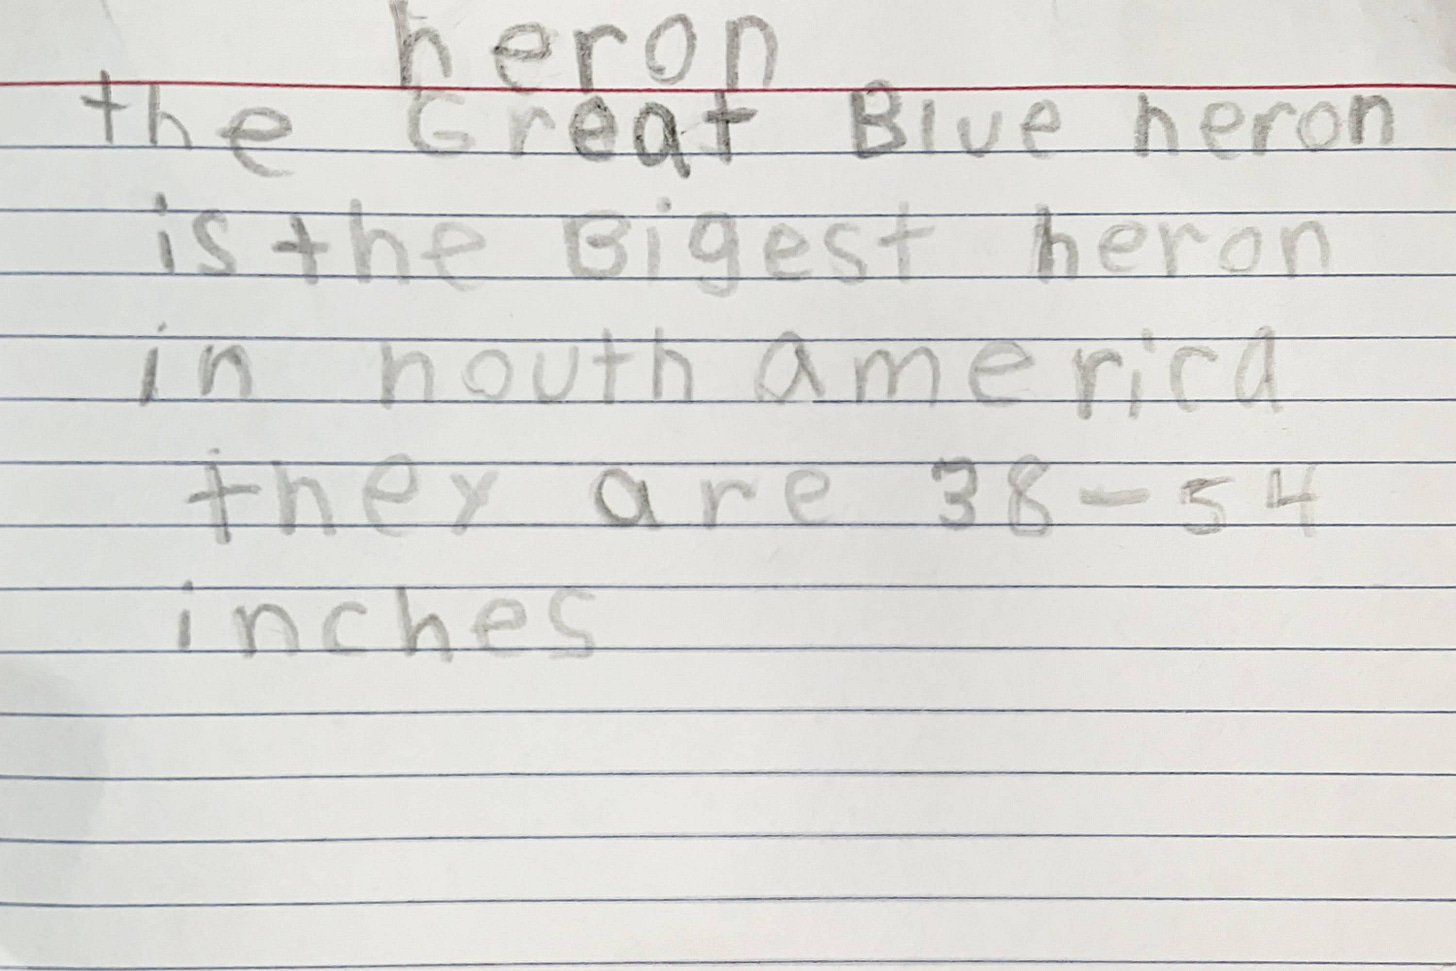 heron
the Great Blue heron
is the Bigest heron
in nouth america
they are 38-54
inches